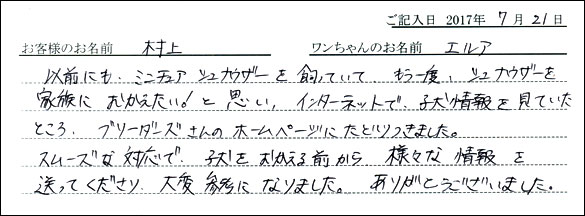 ご記入日 2017年 7月 21日
お客様のお名前 村上 ワンちゃんのお名前 エルア
以前にも、ミニチュア シュナウザーを 飼っていて、もう一度、シュナウザーを
家族に おむかえたい!と 思い、インターネットで、子犬情報を見ていた
ところ、ブリーダーズさんの ホームページに たどりつきました。
スムーズな対応で、子犬をおむかえる前から 様々な 情報を
送ってくださり、大変 参考に なりました。ありがとうございました。